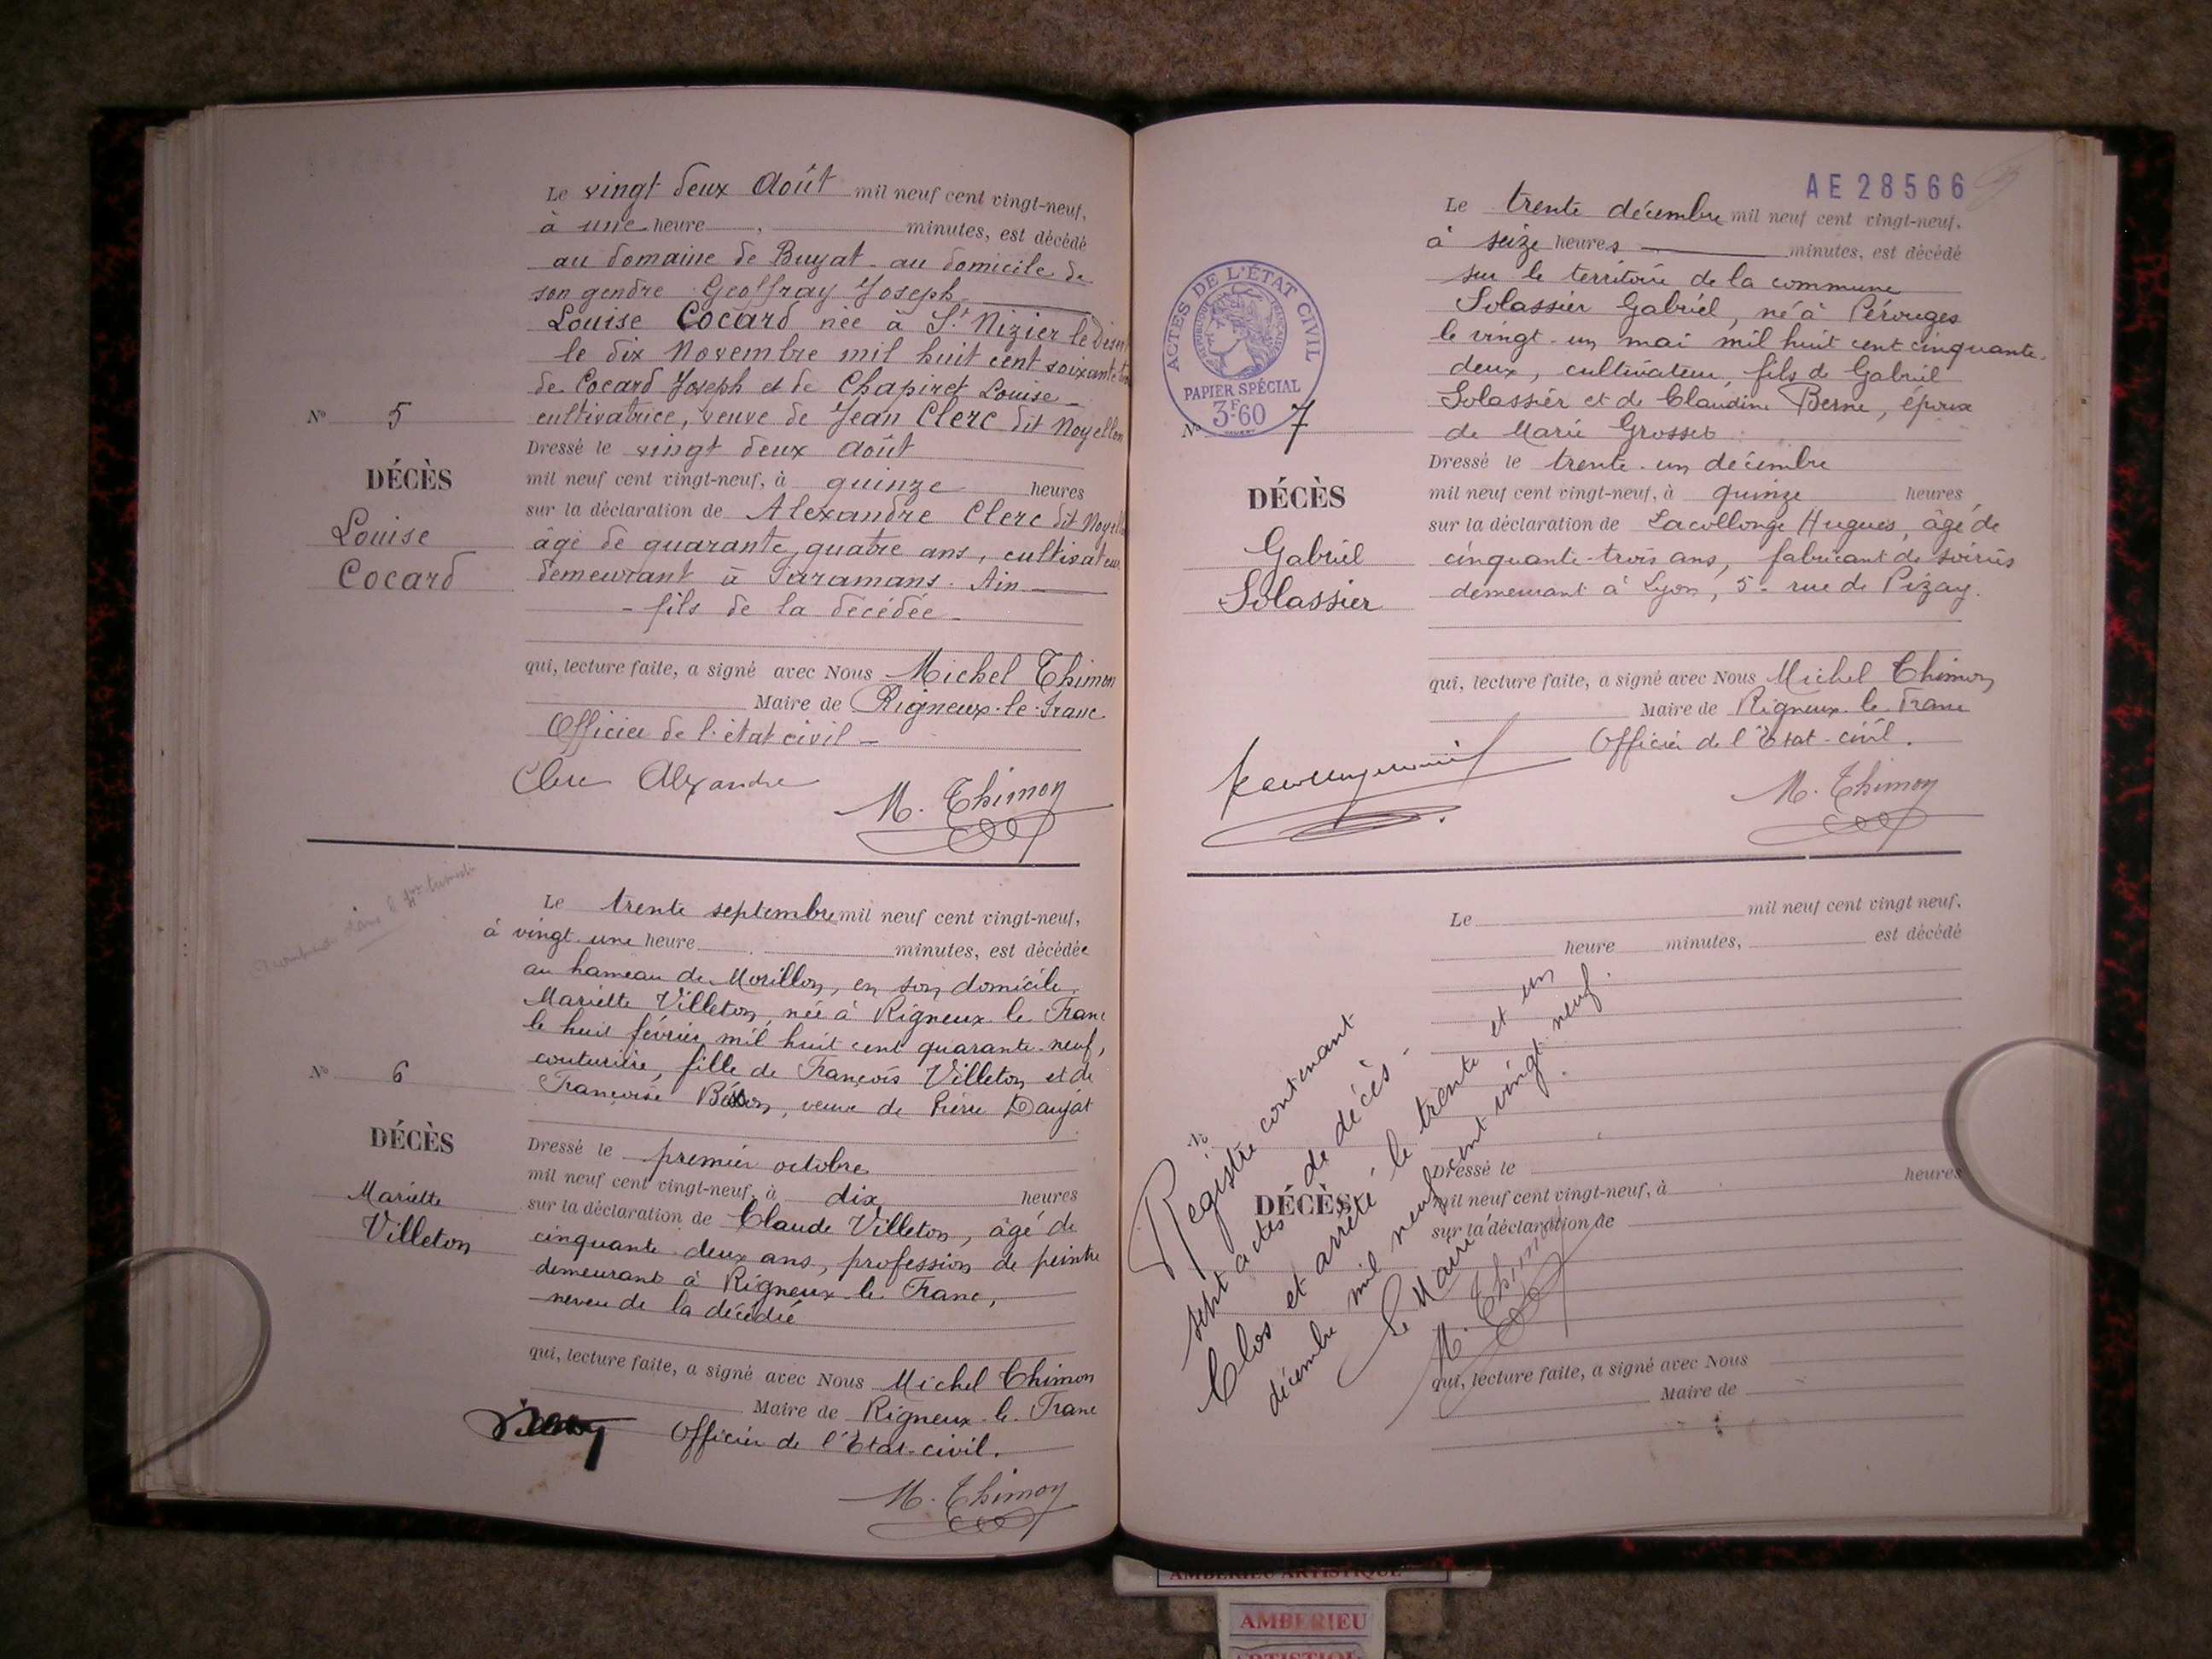 Le vingt deux Août mil neuf cent vingt-neuf,
à une heure, minutes, est décédé
au domaine de Buyat - au domicile de
son gendre Geoffray Joseph
Louise Cocard née à St Nizier le
le dix Novembre mil huit cent soixante
de Cocard Joseph et de Chapiret Louise -
cultivatrice, veuve de Jean Clerc dit Noyellon
Dressé le vingt deux Août
mil neuf cent vingt-neuf, à quinze heures
sur la déclaration de Alexandre Clerc dit
âgé de quarante quatre ans, cultivateur
demeurant à Faramans. Ain
- fils de la décédée -
qui, lecture faite, a signé avec Nous Michel Thimon
Maire de Rigneux-le-Franc
Officier de l'état civil -
Clerc Alexandre
M. Thimon
N° 5
DÉCÈS
Louise
Cocard
Le trente septembre mil neuf cent vingt-neuf,
à vingt-une heure minutes, est décédée
au hameau de Morillon, en son domicile.
Mariette Villeton, née à Rigneux-le-Franc
le huit février mil huit cent quarante-neuf,
couturière, fille de François Villeton et de
Françoise veuve de Pierre Daujat
Dressé le premier octobre
mil neuf cent vingt-neuf, à dix heures
sur la déclaration de Claude Villeton, âgé de
cinquante-deux ans, profession de peintre
demeurant à Rigneux-le-Franc,
neveu de la décédée
qui, lecture faite, a signé avec Nous Michel Thimon
Maire de Rigneux-le-Franc
Officier de l'Etat-civil.
M. Thimon
N° 6
DÉCÈS
Mariette
Villeton
AE 28566
Le trente décembre mil neuf cent vingt-neuf,
à seize heures minutes, est décédé
sur le territoire de la commune
Solassier Gabriel, né à Pérouges
le vingt-un mai mil huit cent cinquante-
deux, cultivateur, fils de Gabriel
Solassier et de Claudine Berne, époux
de Marie Grosset
Dressé le trente-un décembre
mil neuf cent vingt-neuf, à quinze heures
sur la déclaration de Lacollonge Hugues, âgé de
cinquante-trois ans, fabricant de soiries
demeurant à Lyon, 5 - rue de Pizay.
qui, lecture faite, a signé avec Nous Michel Thimon
Maire de Rigneux-le-Franc
Officier de l'Etat-civil.
M. Thimon
ACTES DE L'ÉTAT CIVIL
RÉPUBLIQUE FRANÇAISE
PAPIER SPÉCIAL
3F60
N° 7
DÉCÈS
Gabriel
Solassier
Le mil neuf cent vingt neuf,
heure minutes, est décédé
N°
DÉCÈS
Dressé le heures
mil neuf cent vingt-neuf, à
sur la déclaration de
qui, lecture faite, a signé avec Nous
Maire de
Registre contenant
sept actes de décès -
Clos et arrêté le trente et un
décembre mil neuf cent vingt neuf.
Le Maire
M. Thimon
AMBERIEU ARTISTIQUE
AMBERIEU
ARTISTIQUE